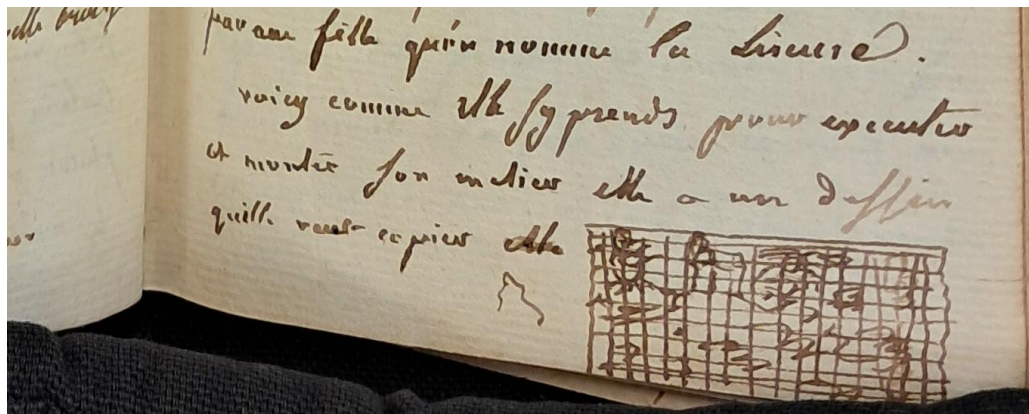 par une fille qu'en nomme la Liseuse.
voicy comme elle sy prends pour executer
et monter son metier elle a un dessin
quelle veut copier elle